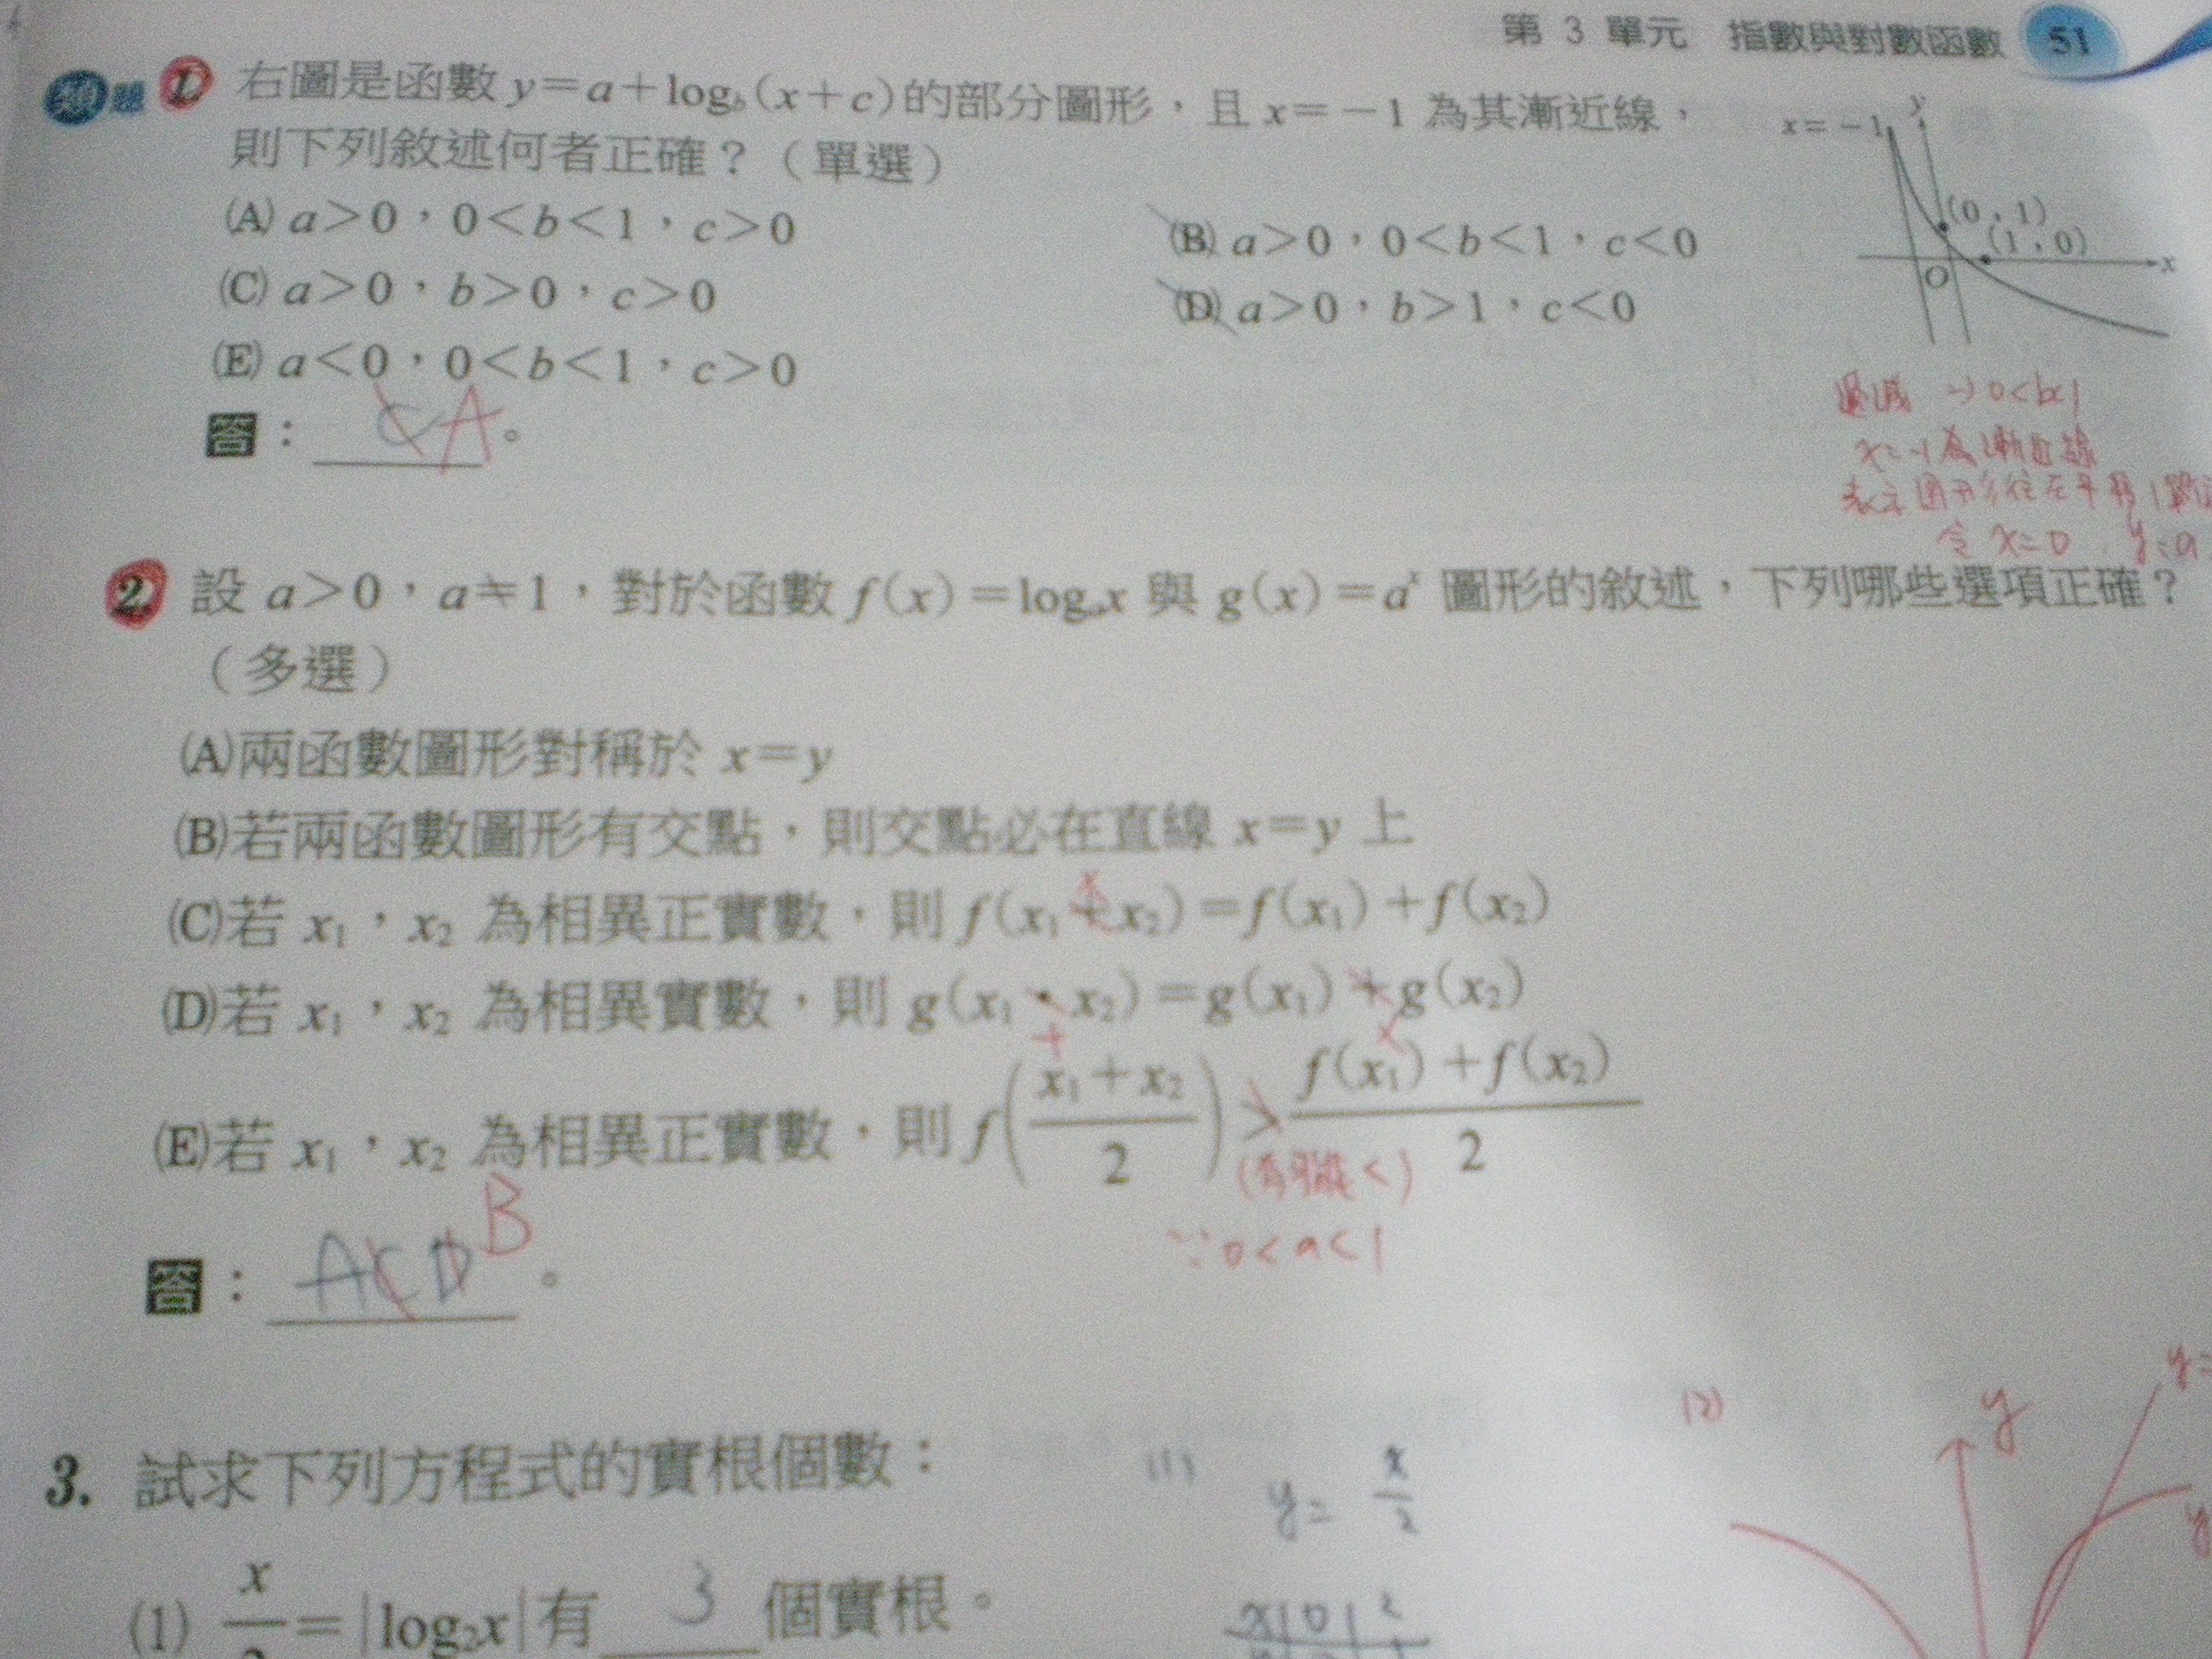 第 3 單元 指數與對數函數 51
類題 1. 右圖是函數 y=a+log_b(x+c)的部分圖形，且 x=-1 為其漸近線，
則下列敘述何者正確？（單選）
(A) a>0，0<b<1，c>0
(B) a>0，0<b<1，c<0
(C) a>0，b>0，c>0
(D) a>0，b>1，c<0
(E) a<0，0<b<1，c>0
答：C A 。
x=-1
y
(0，1)
(1，0)
O
x
遞減 → 0<b<1
x=-1為漸近線
表示圖形往左平移1單
令 x=0，y=a
2. 設 a>0，a≠1，對於函數 f(x)=log_a x 與 g(x)=a^x 圖形的敘述，下列哪些選項正確？
（多選）
(A)兩函數圖形對稱於 x=y
(B)若兩函數圖形有交點，則交點必在直線 x=y 上
(C)若 x₁，x₂ 為相異正實數，則 f(x₁+x₂)=f(x₁)+f(x₂)
x
(D)若 x₁，x₂ 為相異實數，則 g(x₁·x₂)=g(x₁)+g(x₂)
+ x
(E)若 x₁，x₂ 為相異正實數，則 f((x₁+x₂)/2)>(f(x₁)+f(x₂))/2
<)
∵0<a<1
答：ACD B 。
3. 試求下列方程式的實根個數：
(1) x/2=|log₂x|有 3 個實根。
(1) y= x/2
x 0 2
(2)
y
y=
y